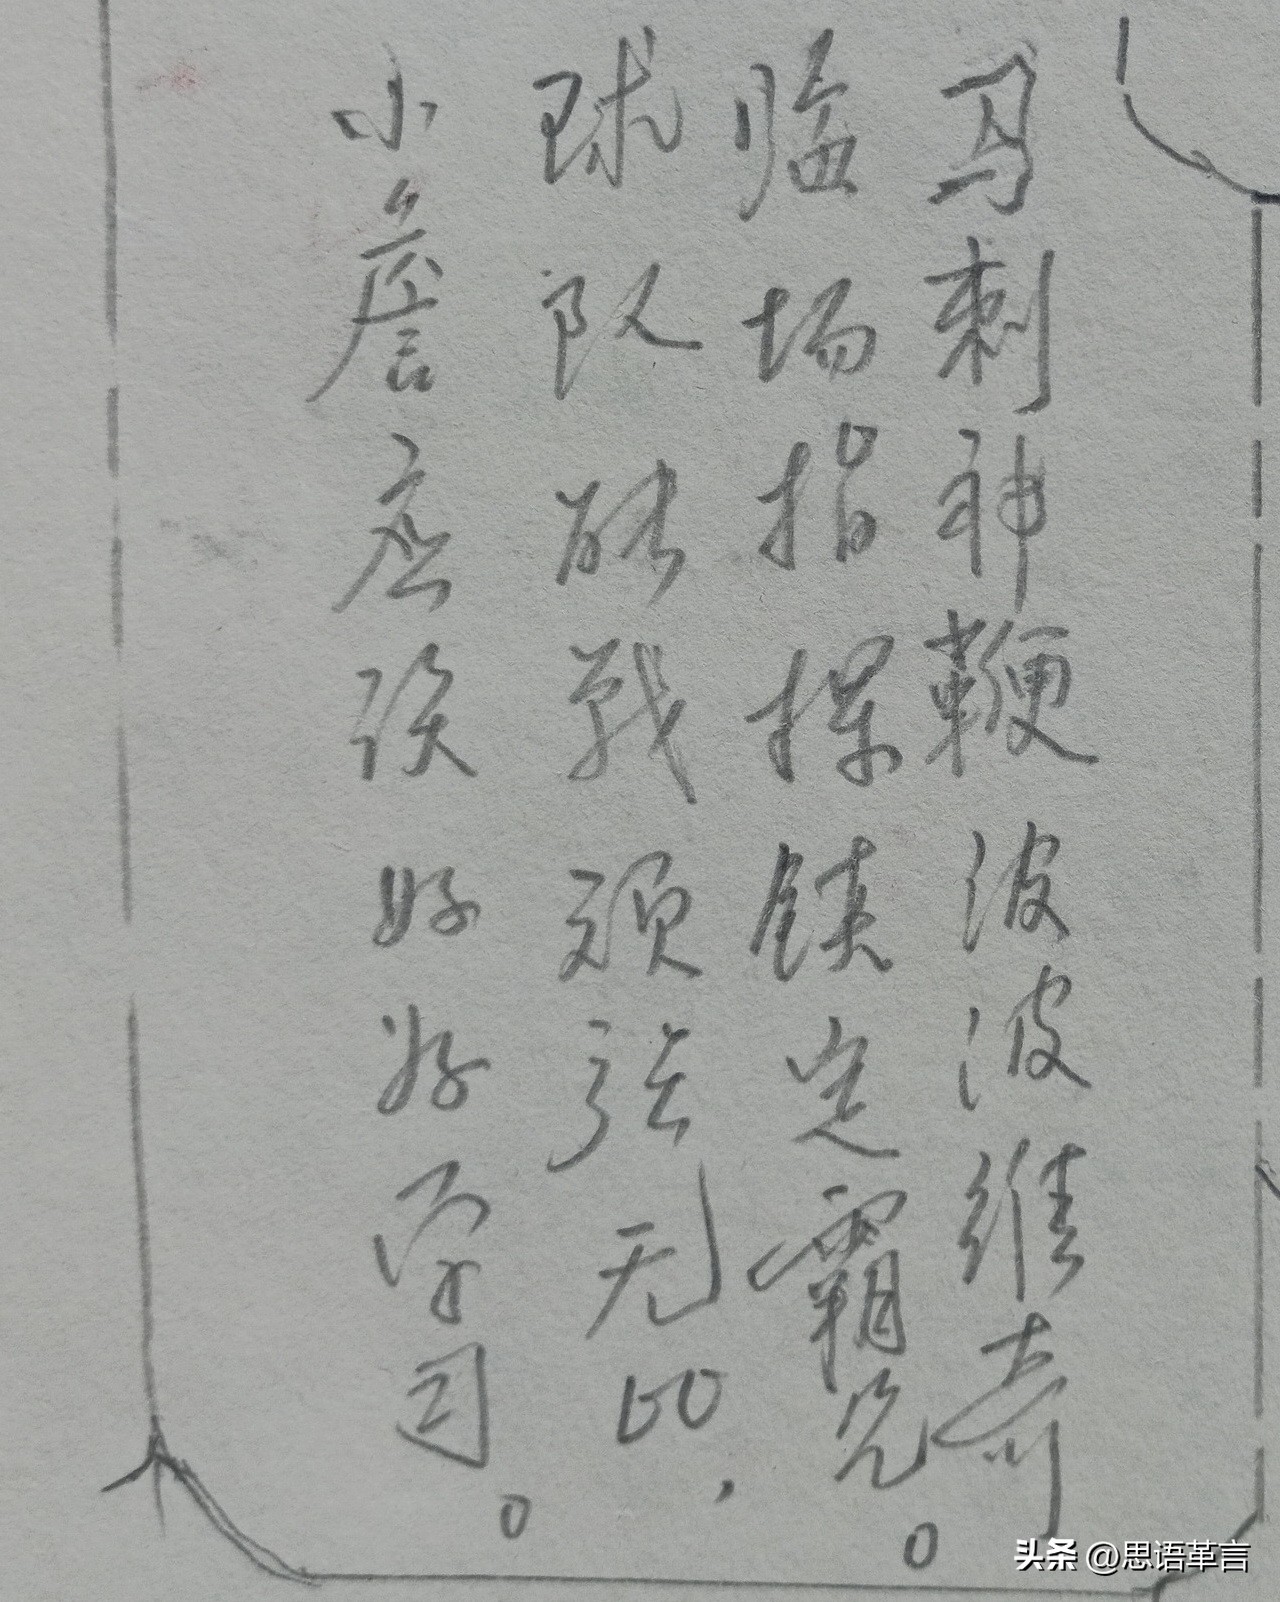 马刺神鞭波波维奇
临场指挥铁定霸气。
球队能战顽强无比，
小詹应该好好学习。
头条 @思语革言